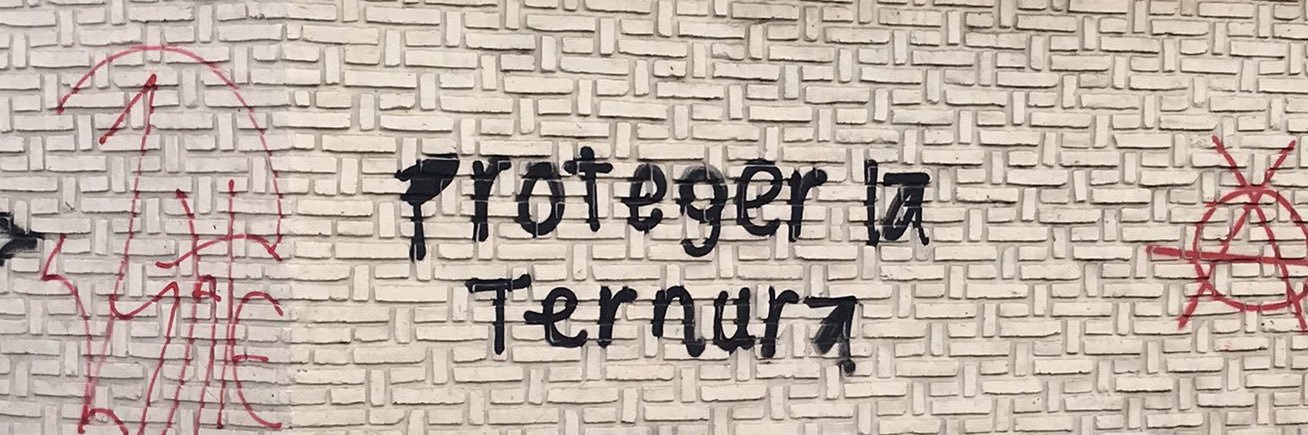 Proteger la
Ternura